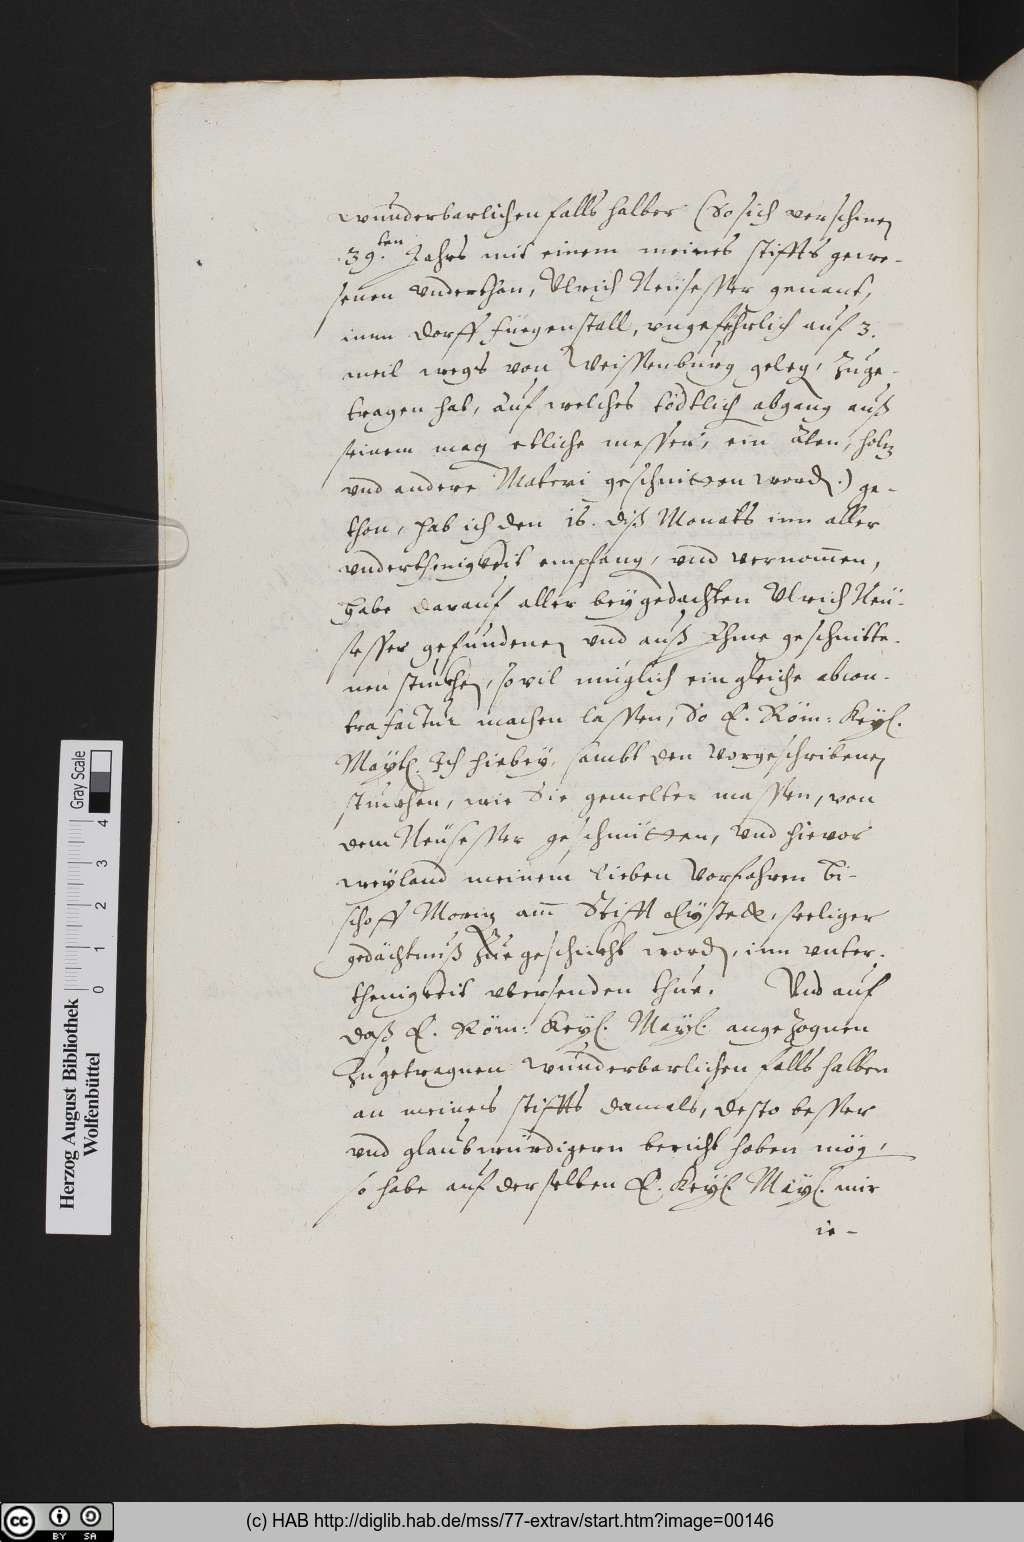 wunderbarlichen falls halber (So sich verschinen
39.ten Jahrs mit einem meines stiffts gewe-
senen underthan, Ulrich Neüsesser genant,
inn dorff Fuegenstall, ungefehrlich auf 3.
meil wegs von Weissenburg gelegen, Zuge-
tragen hat, auf welches tödtlich abgang auß
seinem mag etliche messer, ein Alen, holz
und andere Materi geschnitten worden.) ge-
thon, hab ich den 16. diß Monats inn aller
underthenigkeit empfang, und vernomen,
Habe darauf aller beÿ gedachten Ulrich Neü-
sesser gefundenen und auß Ihme geschnitte-
nen stuckhen, sovil müglich ein gleiche abcon-
trafactur machen lassen, So E. Röm: Keÿ.
Maÿt. Ich hiebeÿ, sambt den Vorgeschribenen
stuckhen, wie Sie gemelter massen, von
dem Neüsesser geschnitten, und hievor
weyland meinem lieben Vorfahren Bi-
schoff Moriz am Stifft Eÿstett, seeliger
gedächtnuß Zue geschickht worden, inn unter-
thenigkeit ubersenden thue. Und auf
daß E. Röm: Keÿ. Maÿt. angezognen
Zugetragnen wunderbarlichen falls halben
an meines stiffts damals, desto besser
und glaubwürdigern bericht haben mög,
so habe auf derselben E. Keÿ. Maÿ. mir
ie-
Gray Scale
0 1 2 3 4
Herzog August Bibliothek
Wolfenbüttel
cc BY SA
(c) HAB http://diglib.hab.de/mss/77-extrav/start.htm?image=00146